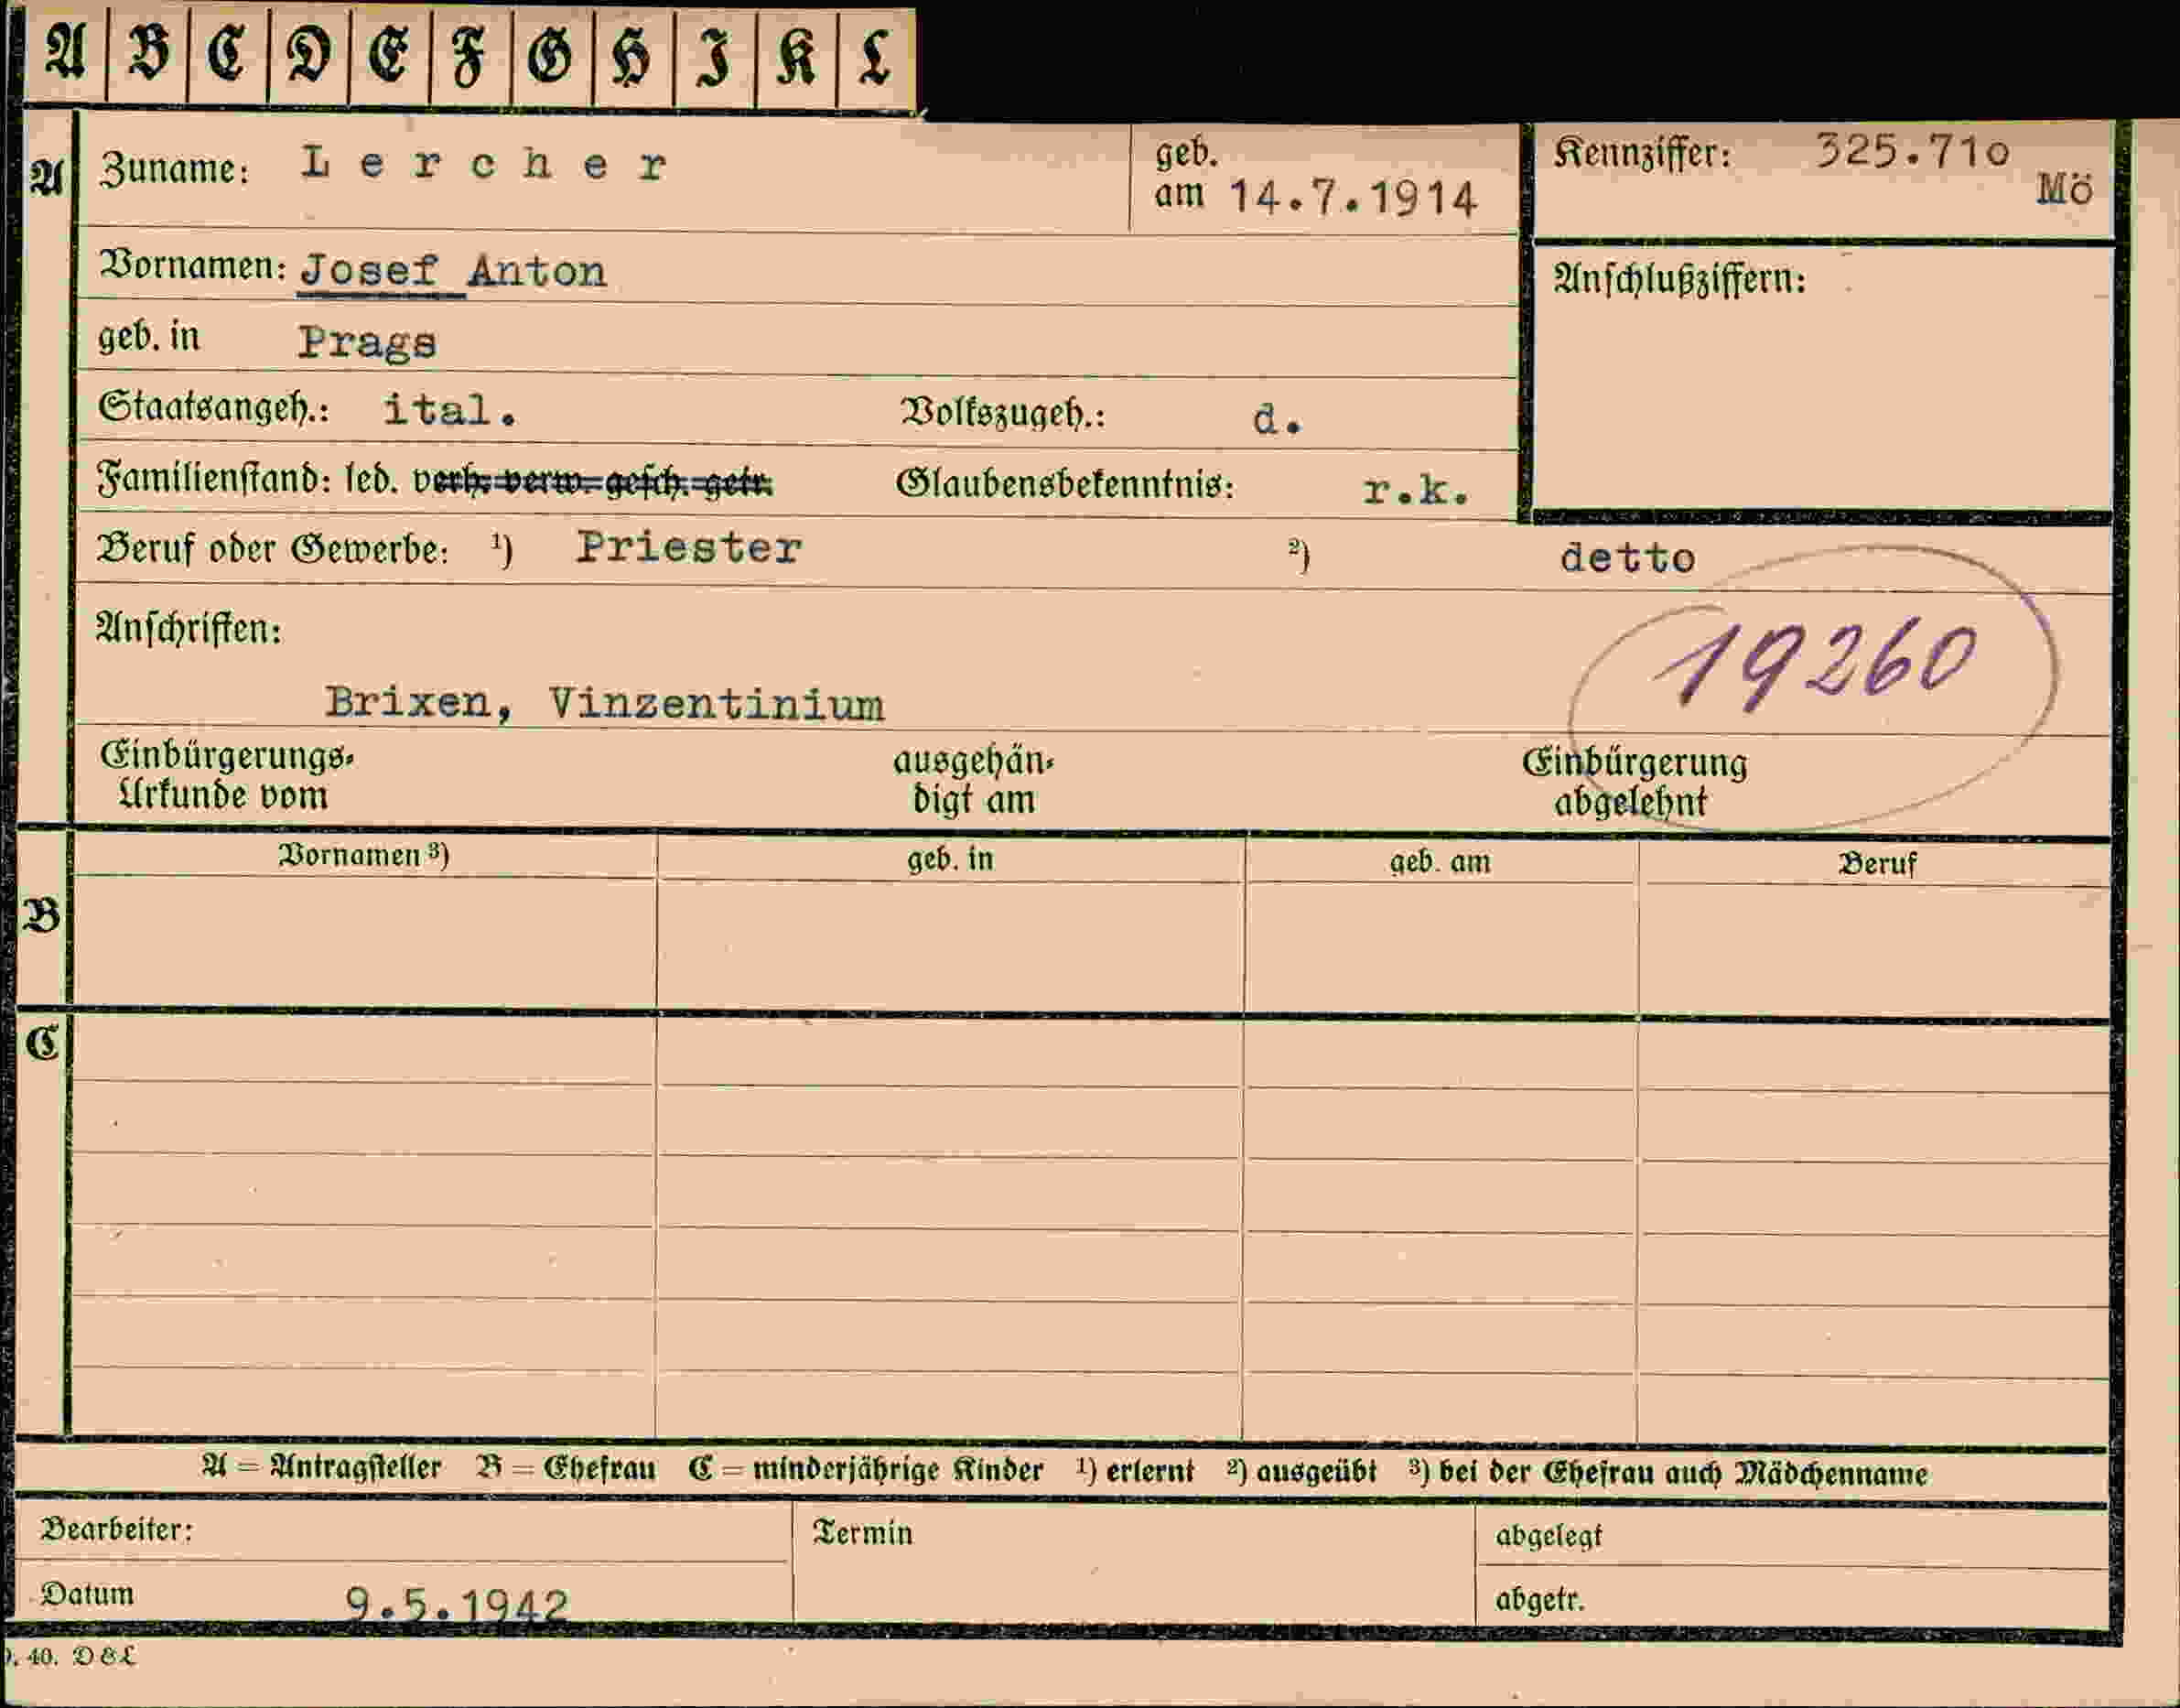 A B C D E F G H I K L
A Zuname: Lercher geb. am 14.7.1914 Kennziffer: 325.710 Mö
Vornamen: Josef Anton Anschlußziffern:
geb. in Prags
Staatsangeh.: ital. Volkszugeh.: d.
Familienstand: led. verh. verw. gesch. getr. Glaubensbekenntnis: r.k.
Beruf oder Gewerbe: ¹) Priester ²) detto
Anschriften:
19260
Brixen, Vinzentinium
Einbürgerungs- ausgehän- Einbürgerung
Urkunde vom digt am abgelehnt
Vornamen ³) geb. in geb. am Beruf
B
C
A = Antragsteller B = Ehefrau C = minderjährige Kinder ¹) erlernt ²) ausgeübt ³) bei der Ehefrau auch Mädchenname
Bearbeiter: Termin abgelegt
Datum 9.5.1942 abgetr.
. 40. D&L